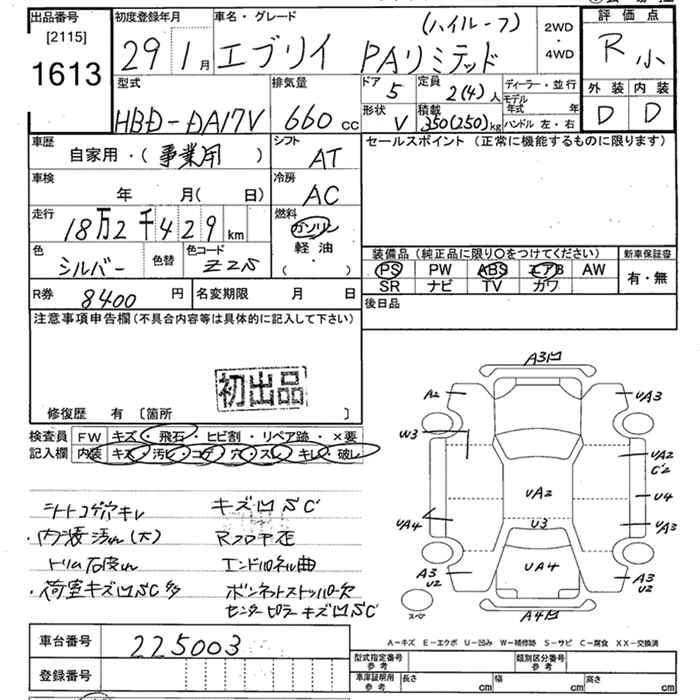 出品番号 初度登録年月 車名・グレード (ハイルーフ) 2WD ・ 4WD 評価点
[2115]
1613 29 1月 エブリイ PAリミテッド R 小
型式 排気量 ドア 5 定員 2(4)人 ディーラー・並行 外装 内装
モデル年式 年
HBD-DA17V 660cc 形状 V 積載 350(250)kg ハンドル 左・右 D D
車歴 自家用・(事業用) シフト AT セールスポイント (正常に機能するものに限ります)
車検 年 月( 日) 冷房 AC
走行 18万2千429km 燃料 ガソリン
軽油
・( )
色 シルバー 色替 色コード Z2S 装備品 (純正品に限り○をつけてください) 新車保証書
PS PW ABS エアB AW 有・無
SR ナビ TV カワ
R券 8400円 名変期限 月 日 後日品
注意事項申告欄 (不具合内容等は具体的に記入して下さい)
初出品
修復歴 有 〔箇所 〕
検査員 FW キズ・飛石・ヒビ割・リペア跡・×要
記入欄 内装 キズ・汚れ・コゲ・穴・スレ・キレ・破レ
シートコゲ穴キレ キズ凹SC
・内装汚れ(大) Rフロア歪
トリム石皮れ エンドパネル曲
・荷室キズ凹SC多 ボンネットストッパー欠
センターピラーキズ凹SC
A3凹
A2 UA3
W3 UA2
C2
UA2 U4
UA4 U3 UA3
UA4
A3 A3
U2 U2
スペア A4凹
A－キズ E－エクボ U－凹み W－補修跡 S－サビ C－腐食 XX－交換済
車台番号 225003
登録番号
型式指定番号 参考 類別区分番号 参考
車庫証明 参考 長さ cm 幅 cm 高さ cm